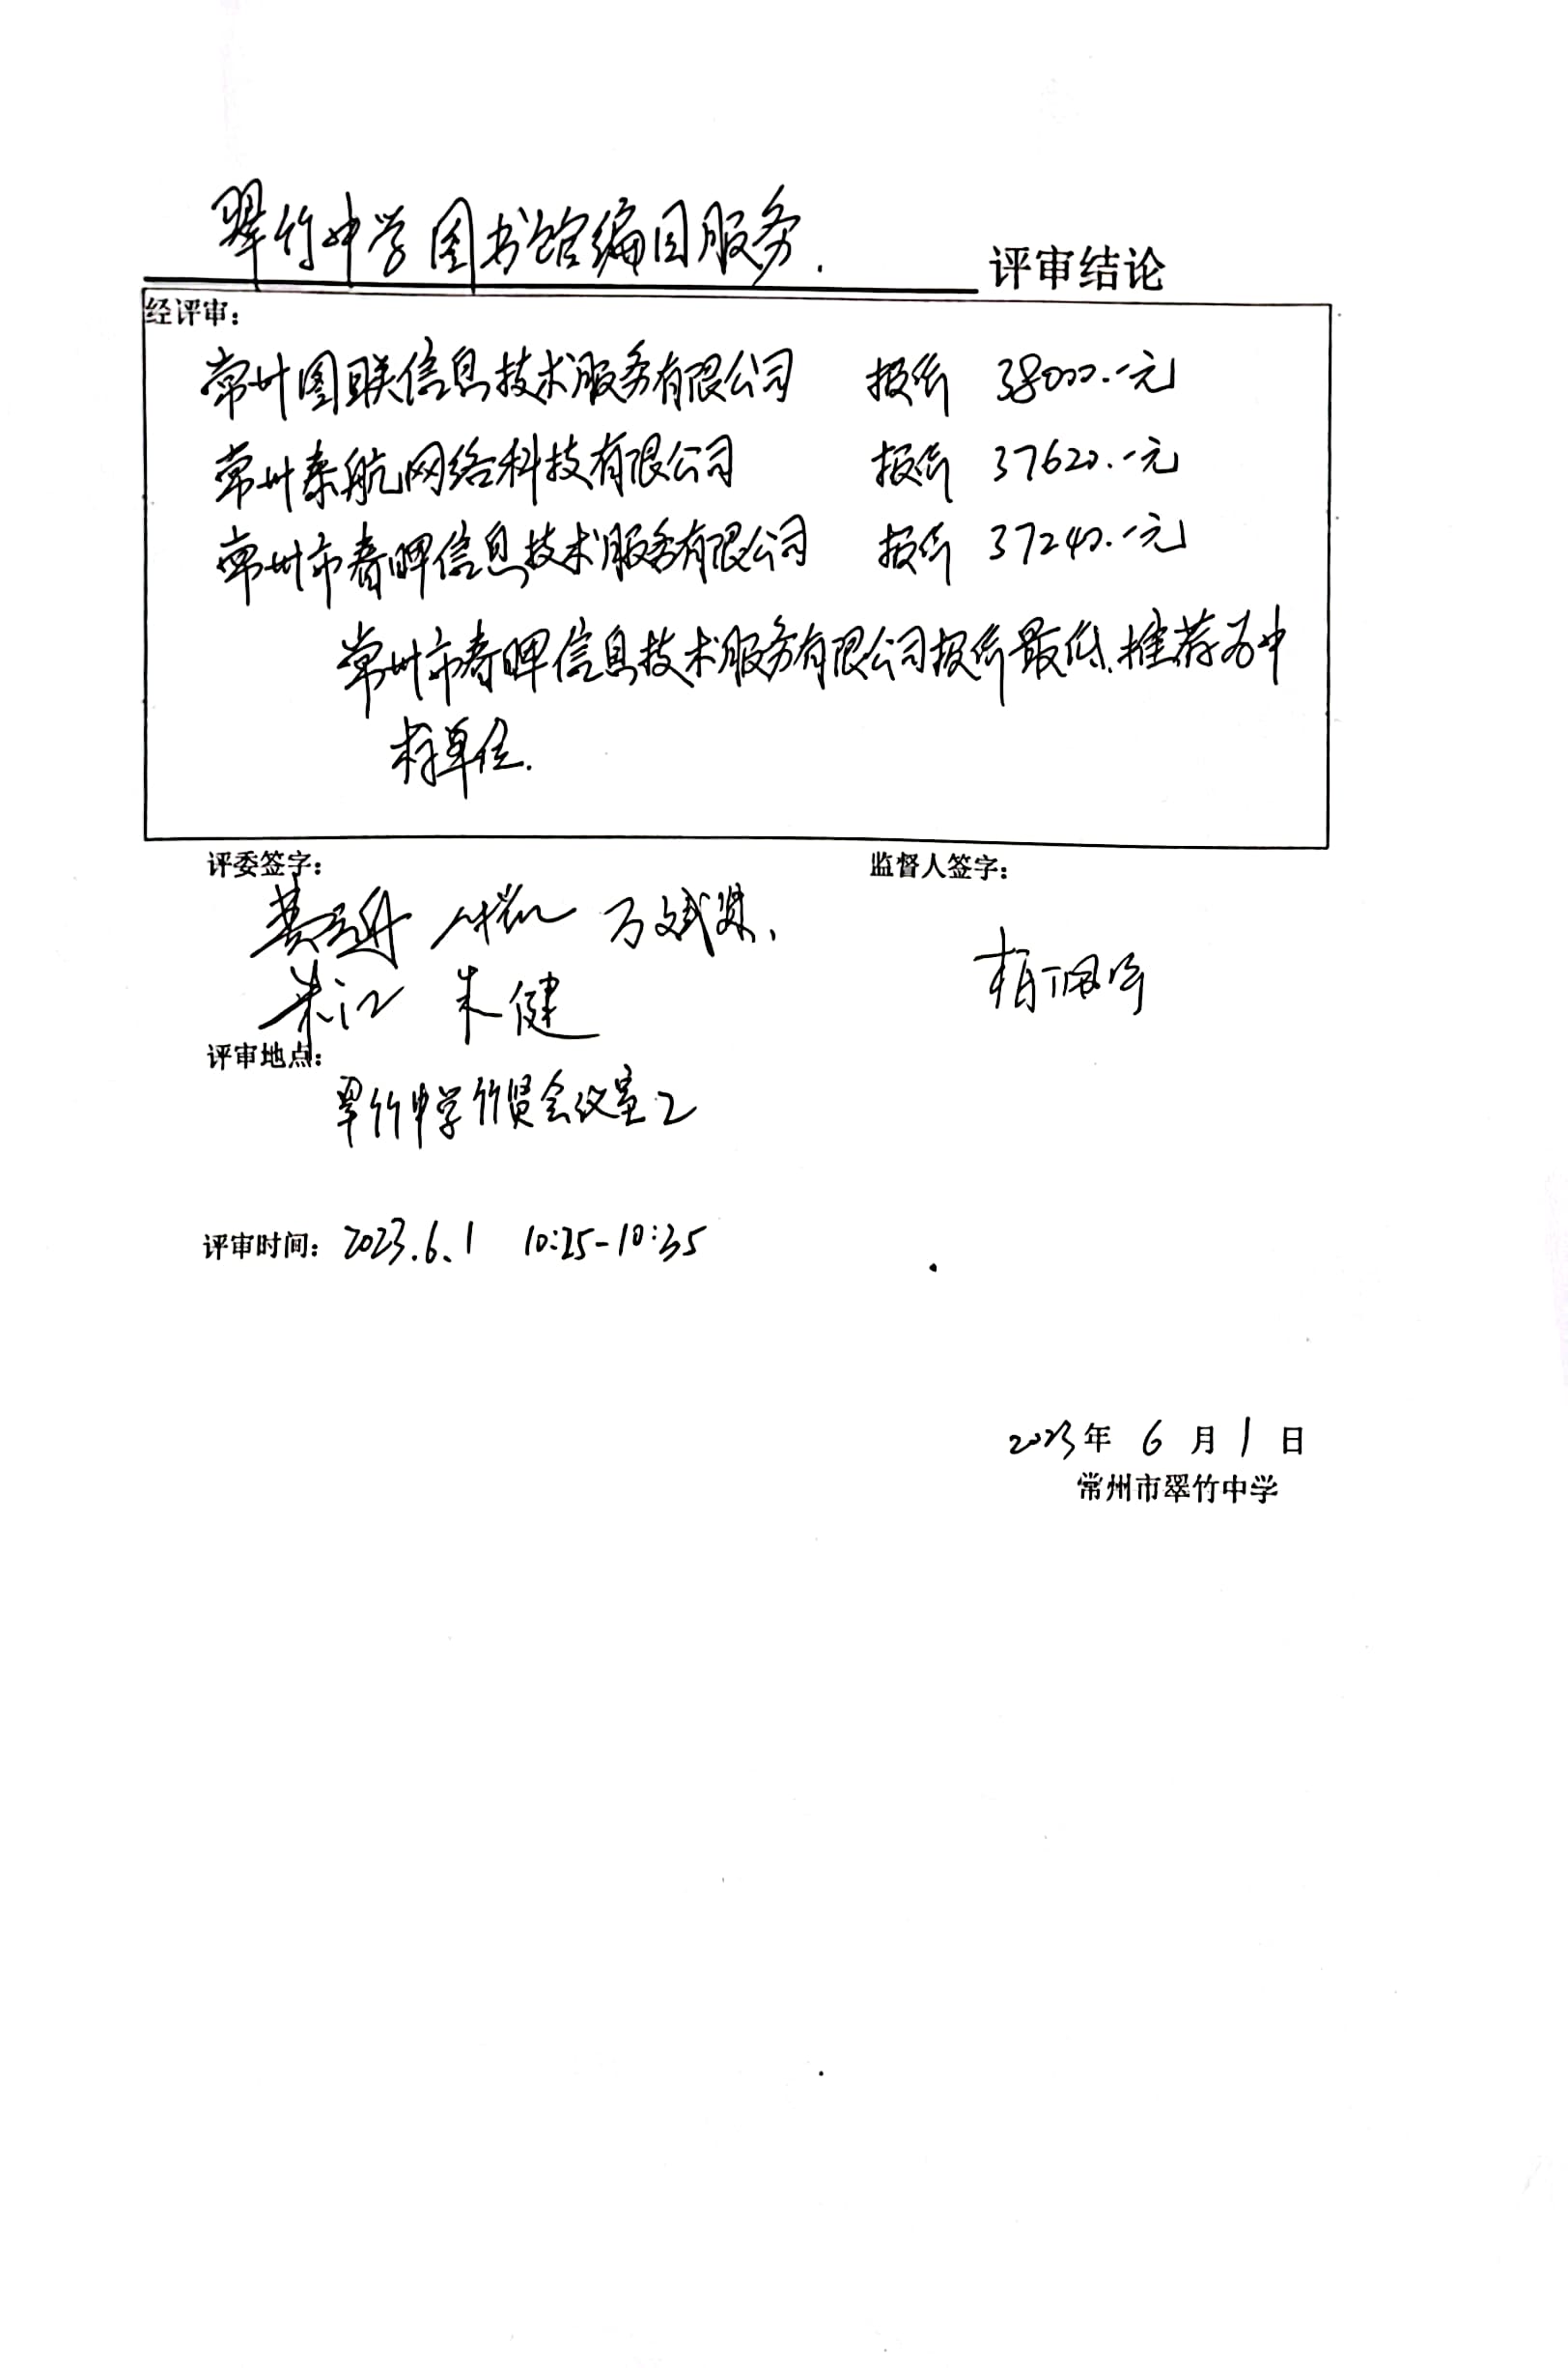 翠竹中学图书馆编目服务. 评审结论
经评审：
常州图联信息技术服务有限公司 报价 38000.-元
常州泰航网络科技有限公司 报价 37620.-元
常州市春晖信息技术服务有限公司 报价 37240.-元
常州市春晖信息技术服务有限公司报价最低.推荐为中
标单位.
评委签字： 监督人签字：
万斌
朱江 朱健
评审地点：
翠竹中学竹贤会议室2
评审时间：2023.6.1 10:25-10:35
2023年 6 月 1 日
常州市翠竹中学